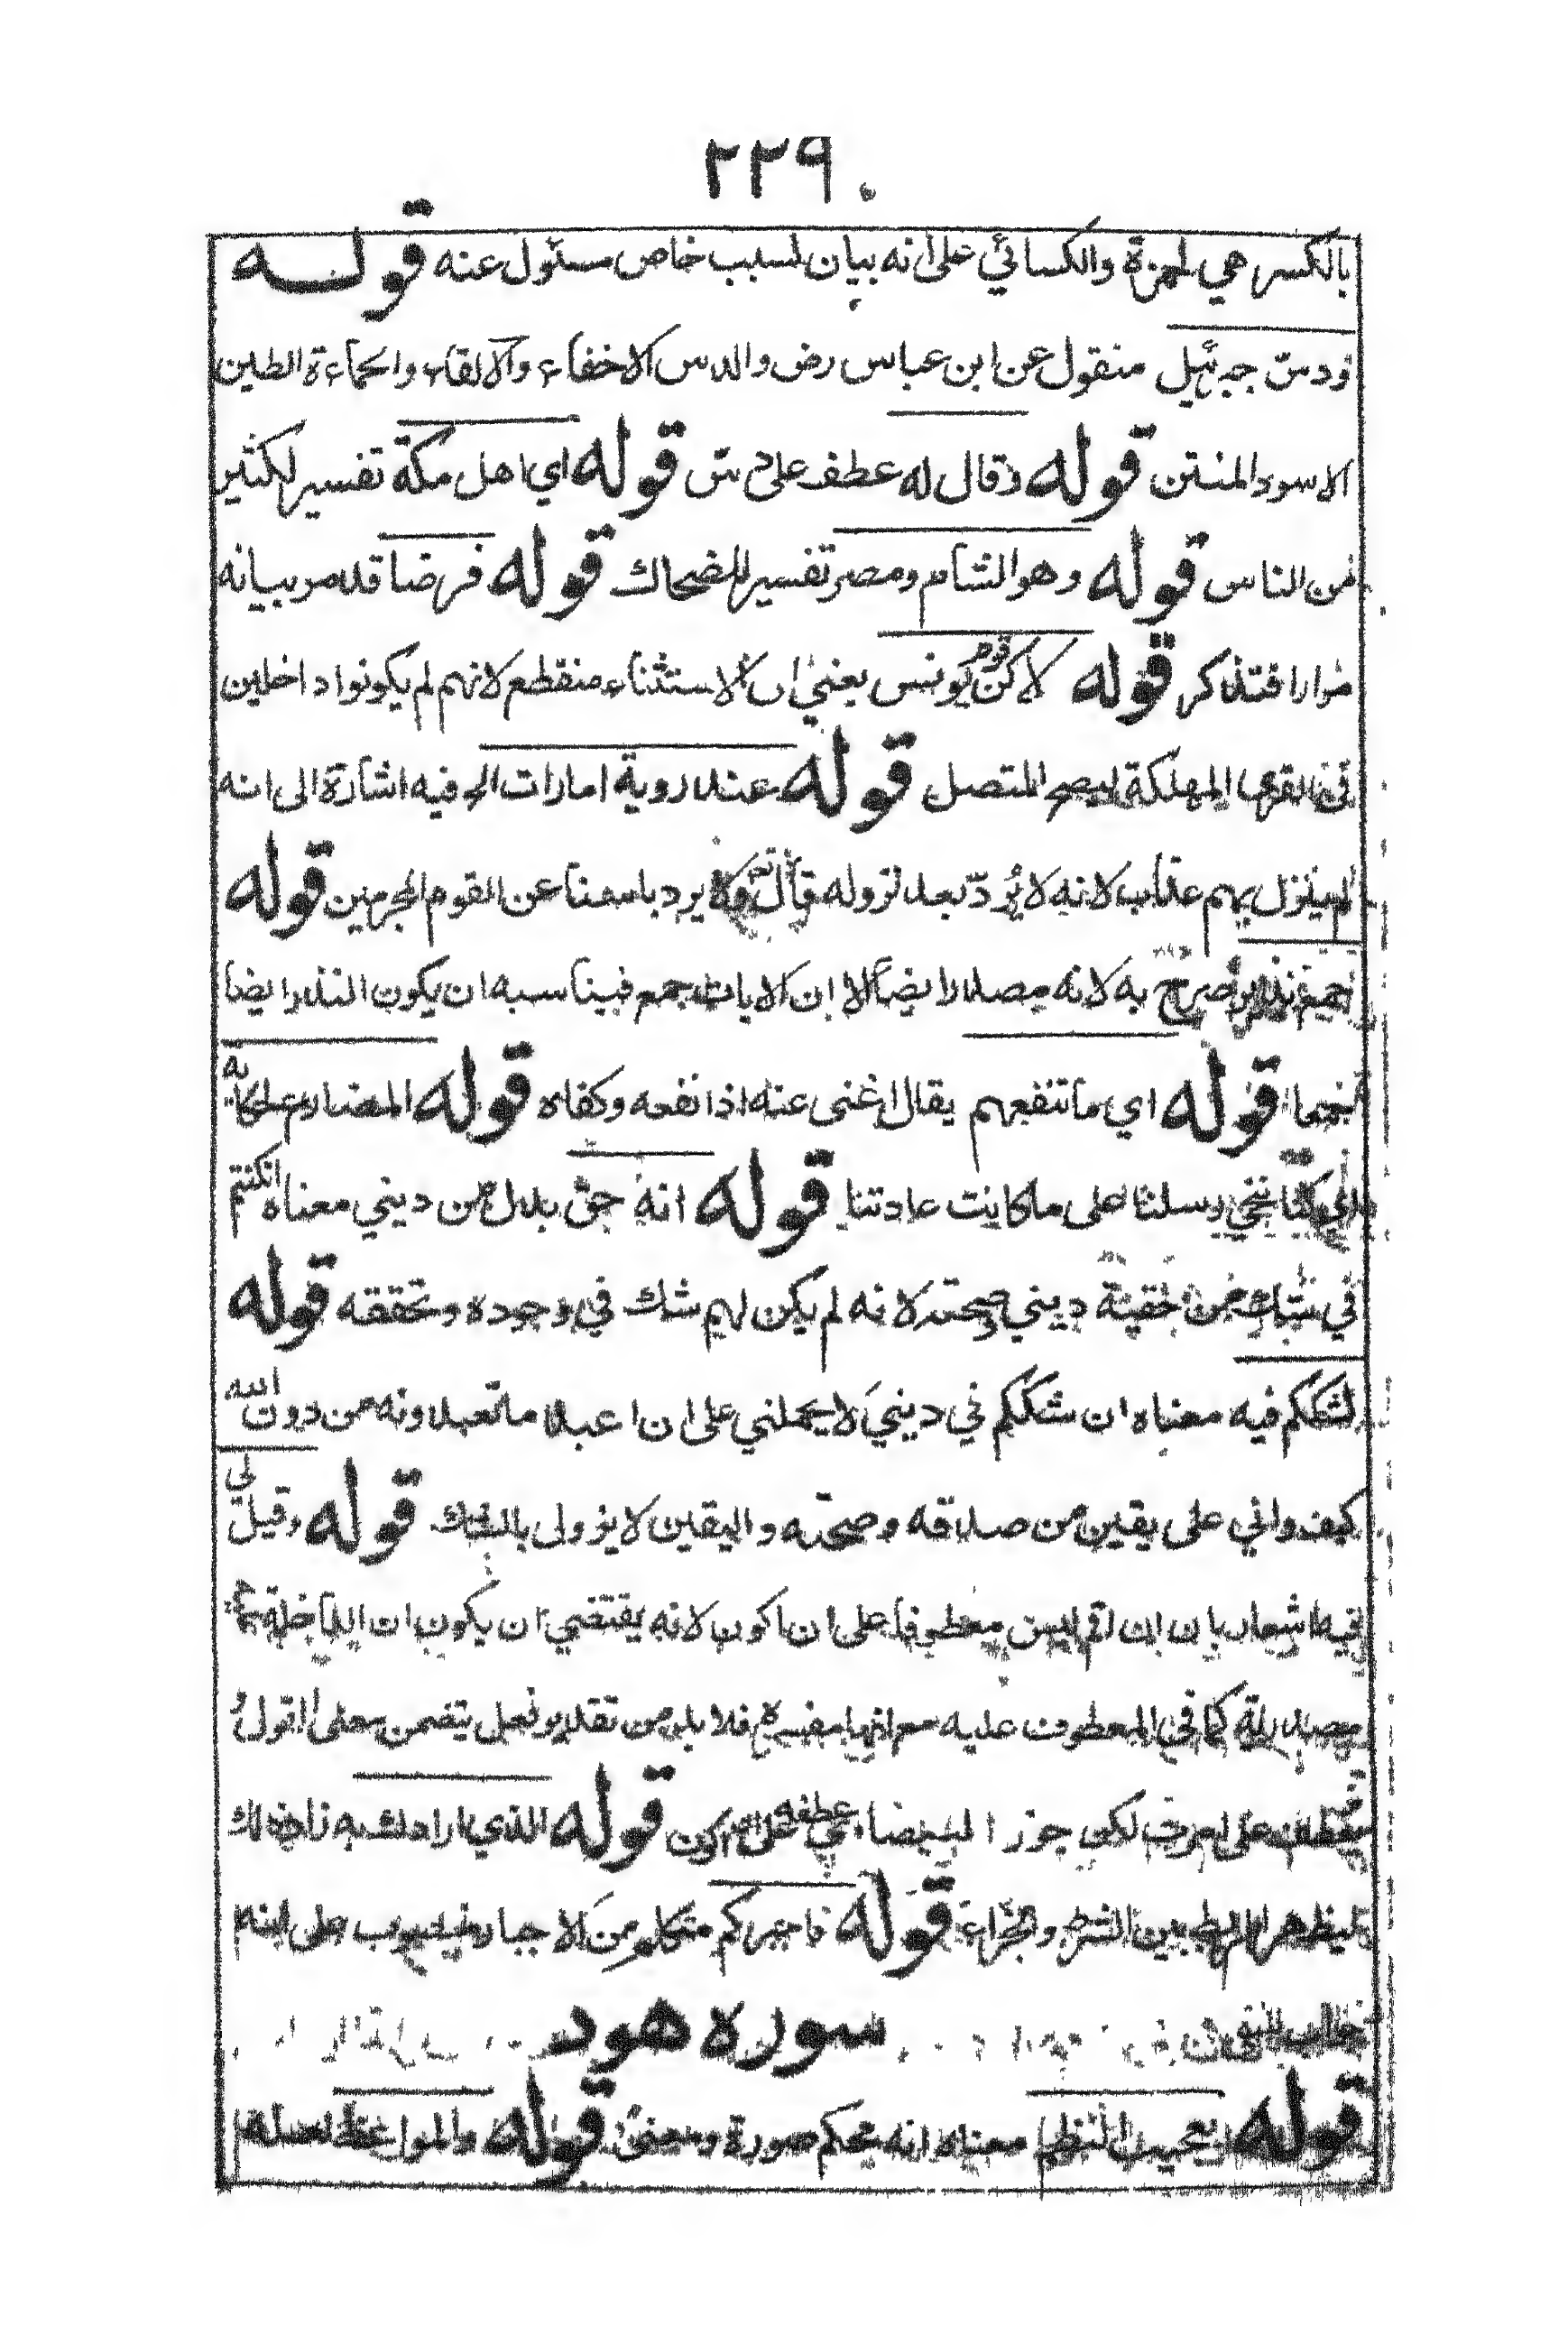 ٢٢٩
بالكسر هي لحمزة والكسائي على انه بيان لسبب خاص مسئول عنه قوله
ودس جبرئيل منقول عن ابن عباس رض والدس الاخفاء والالقاء والحماءة الطين
الاسود المنتن قوله وقال له عطف على دس قوله اي اهل مكة تفسير لكثير
من الناس قوله وهو الشام ومصر تفسير للضحاك قوله فرضا قد مر بيانه
مرارا فتذاكر قوله لاكن قوم يونس يعني ان الاستثناء منقطع لانهم لم يكونوا داخلين
في القرى المهلكة ليصح المتصل قوله عند روية امارات الخ فيه اشارة الى انه
لم ينزل بهم عذاب لانه لا يرد بعد نزوله قال تعم ولا يرد باسنا عن القوم المجرمين قوله
جمع نذير صرح به لانه مصدر ايضا الا ان الايات جمع فيناسبه ان يكون النذر ايضا
جمعا قوله اي ما تنفعهم يقال اغنى عنه اذا نفعه وكفاه قوله المضارع لحكاية
ننجي رسلنا على ما كانت عادتنا قوله انه حق بدل من ديني معناه ان كنتم
في شك من حقية ديني وصحته لانه لم يكن لهم شك في وجوده وتحققه قوله
لشككم فيه معناه ان شككم في ديني لا يحملني على ان اعبد ما تعبدونه من دون الله
كيف واني على يقين من صدقه وصحته واليقين لا يزول بالشك قوله وقيل لي
فيه اشعار بان ان اقم ليس معطوفا على ان اكون لانه يقتضي ان يكون ان الداخلة
مصدرية كما في المعطوف عليه مع انها مفسرة فلا بد من تقدير فعل يتضمن معنى القول
على جوز البيضا عطفه على ان اكون قوله الذي ارادك به
ليظهر الربط بين الشرط والجزاء قوله فاجبركم متكلم من الاجبار على انه
سوره هود
قوله بعجيب النظم معناه انه محكم صورة ومعنى قوله والمواعظ